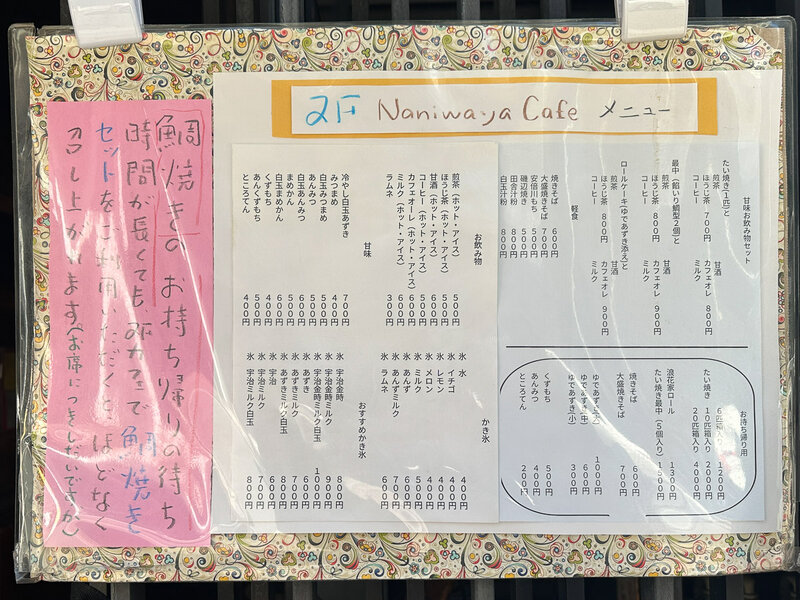 2F Naniwaya Cafe メニュー
甘味お飲み物セット
たい焼き(1匹)と
煎茶 甘酒
ほうじ茶 700円 カフェオレ 800円
コーヒー ミルク
最中(餡いり鯛型2個)と
煎茶 甘酒
ほうじ茶 800円 カフェオレ 900円
コーヒー ミルク
ロールケーキ(ゆであずき添え)と
煎茶 甘酒
ほうじ茶 800円 カフェオレ 900円
コーヒー ミルク
軽食
焼きそば 600円
大盛焼きそば 700円
安倍川もち 500円
磯辺焼き 500円
田舎汁粉 800円
白玉汁粉 800円
お持ち帰り用
たい焼き 6匹箱入り 1200円
10匹箱入り 2000円
20匹箱入り 4000円
浪花家ロール 1300円
たい焼き最中(5個入り) 1500円
焼きそば 600円
大盛焼きそば 700円
ゆであずき(大) 1000円
ゆであずき(中) 600円
ゆであずき(小) 300円
くずもち 500円
あんみつ 400円
ところてん 200円
お飲み物
煎茶(ホット・アイス) 500円
ほうじ茶(ホット・アイス) 500円
甘酒(ホット・アイス) 600円
コーヒー(ホット・アイス) 500円
カフェオーレ(ホット・アイス) 600円
ミルク(ホット・アイス) 600円
ラムネ 300円
甘味
冷やし白玉あずき 700円
みつまめ 400円
白玉みつまめ 500円
あんみつ 500円
白玉あんみつ 600円
まめかん 500円
白玉まめかん 600円
くずもち 400円
あんくずもち 500円
ところてん 400円
かき氷
氷 水 400円
氷 イチゴ 400円
氷 レモン 400円
氷 メロン 400円
氷 ミルク 500円
氷 あんず 600円
氷 あんずミルク 700円
氷 ラムネ 600円
おすすめかき氷
氷 宇治金時 800円
氷 宇治金時ミルク 900円
氷 宇治金時ミルク白玉 1000円
氷 あずき 600円
氷 あずきミルク 700円
氷 あずきミルク白玉 800円
氷 宇治 600円
氷 宇治ミルク 700円
氷 宇治ミルク白玉 800円
鯛焼きのお持ち帰りの待ち
時間が長くても、2Fカフェで鯛焼き
セットをご利用いただくと、ほどなく
召し上がれます(お席につきしだいですが)